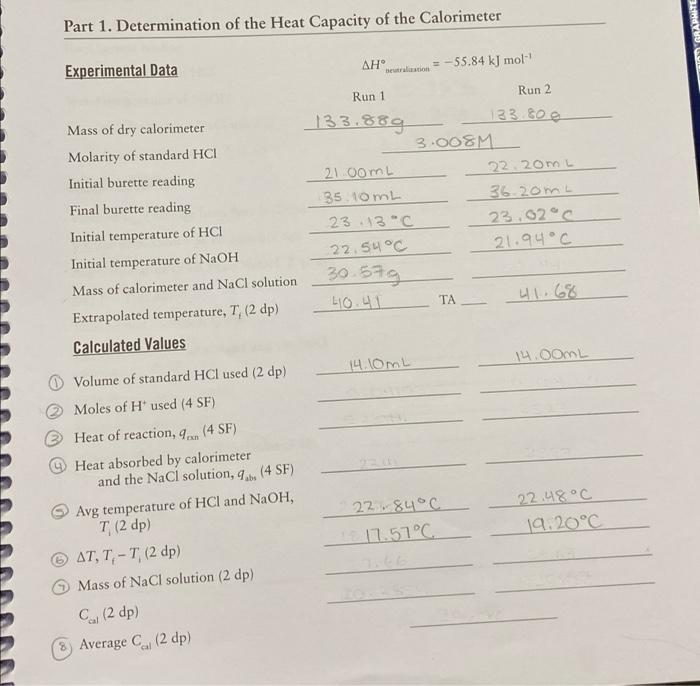 Part 1. Determination of the Heat Capacity of the Calorimeter
Experimental Data
ΔH°neutralization = −55.84 kJ mol⁻¹
Run 1 Run 2
Mass of dry calorimeter 133.88g 133.80g
Molarity of standard HCl 3.008M
Initial burette reading 21.00mL 22.20mL
Final burette reading 35.10mL 36.20mL
Initial temperature of HCl 23.13°C 23.02°C
Initial temperature of NaOH 22.54°C 21.94°C
Mass of calorimeter and NaCl solution 30.57g
Extrapolated temperature, Tf (2 dp) 40.41 TA 41.68
Calculated Values
① Volume of standard HCl used (2 dp) 14.10mL 14.00mL
② Moles of H⁺ used (4 SF)
③ Heat of reaction, qrxn (4 SF)
④ Heat absorbed by calorimeter
and the NaCl solution, qabs (4 SF)
⑤ Avg temperature of HCl and NaOH,
Ti (2 dp) 22.84°C 22.48°C
⑥ ΔT, Tf − Ti (2 dp) 17.57°C 19.20°C
⑦ Mass of NaCl solution (2 dp)
Ccal (2 dp)
⑧ Average Ccal (2 dp)